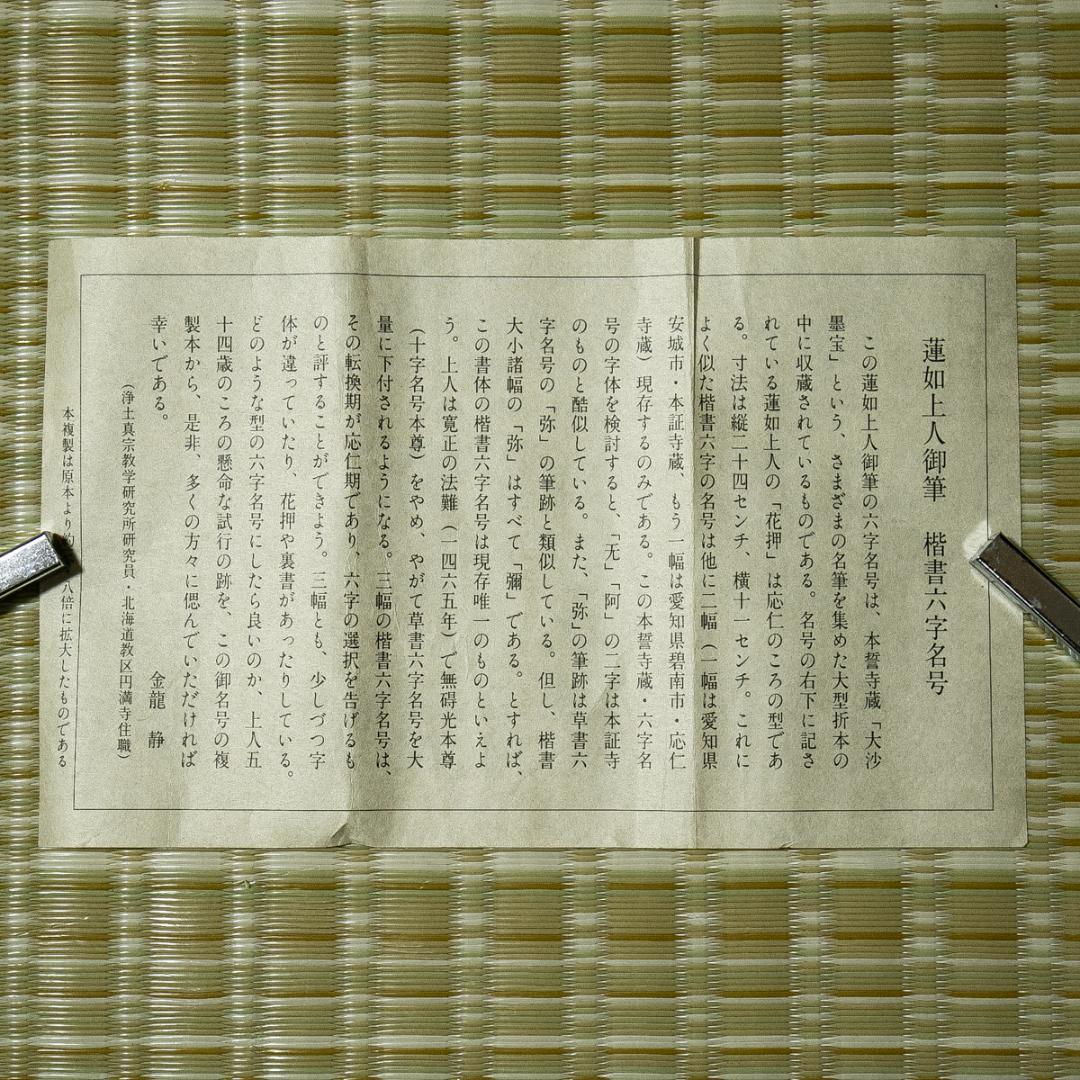 蓮如上人御筆　楷書六字名号
この蓮如上人御筆の六字名号は、本誓寺蔵「大沙
墨宝」という、さまざまの名筆を集めた大型折本の
中に収蔵されているものである。名号の右下に記さ
れている蓮如上人の「花押」は応仁のころの型であ
る。寸法は縦二十四センチ、横十一センチ。これに
よく似た楷書六字の名号は他に二幅（一幅は愛知県
安城市・本証寺蔵、もう一幅は愛知県碧南市・応仁
寺蔵）現存するのみである。この本誓寺蔵・六字名
号の字体を検討すると、「无」「阿」の二字は本証寺
のものと酷似している。また、「弥」の筆跡は草書六
字名号の「弥」の筆跡と類似している。但し、楷書
大小諸幅の「弥」はすべて「彌」である。とすれば、
この書体の楷書六字名号は現存唯一のものといえよ
う。上人は寛正の法難（一四六五年）で無碍光本尊
（十字名号本尊）をやめ、やがて草書六字名号を大
量に下付されるようになる。三幅の楷書六字名号は、
その転換期が応仁期であり、六字の選択を告げるも
のと評することができよう。三幅とも、少しづつ字
体が違っていたり、花押や裏書があったりしている。
どのような型の六字名号にしたら良いのか、上人五
十四歳のころの懸命な試行の跡を、この御名号の複
製本から、是非、多くの方々に偲んでいただければ
幸いである。
金龍　静
（浄土真宗教学研究所研究員・北海道教区円満寺住職）
本複製は原本より約 八倍に拡大したものである